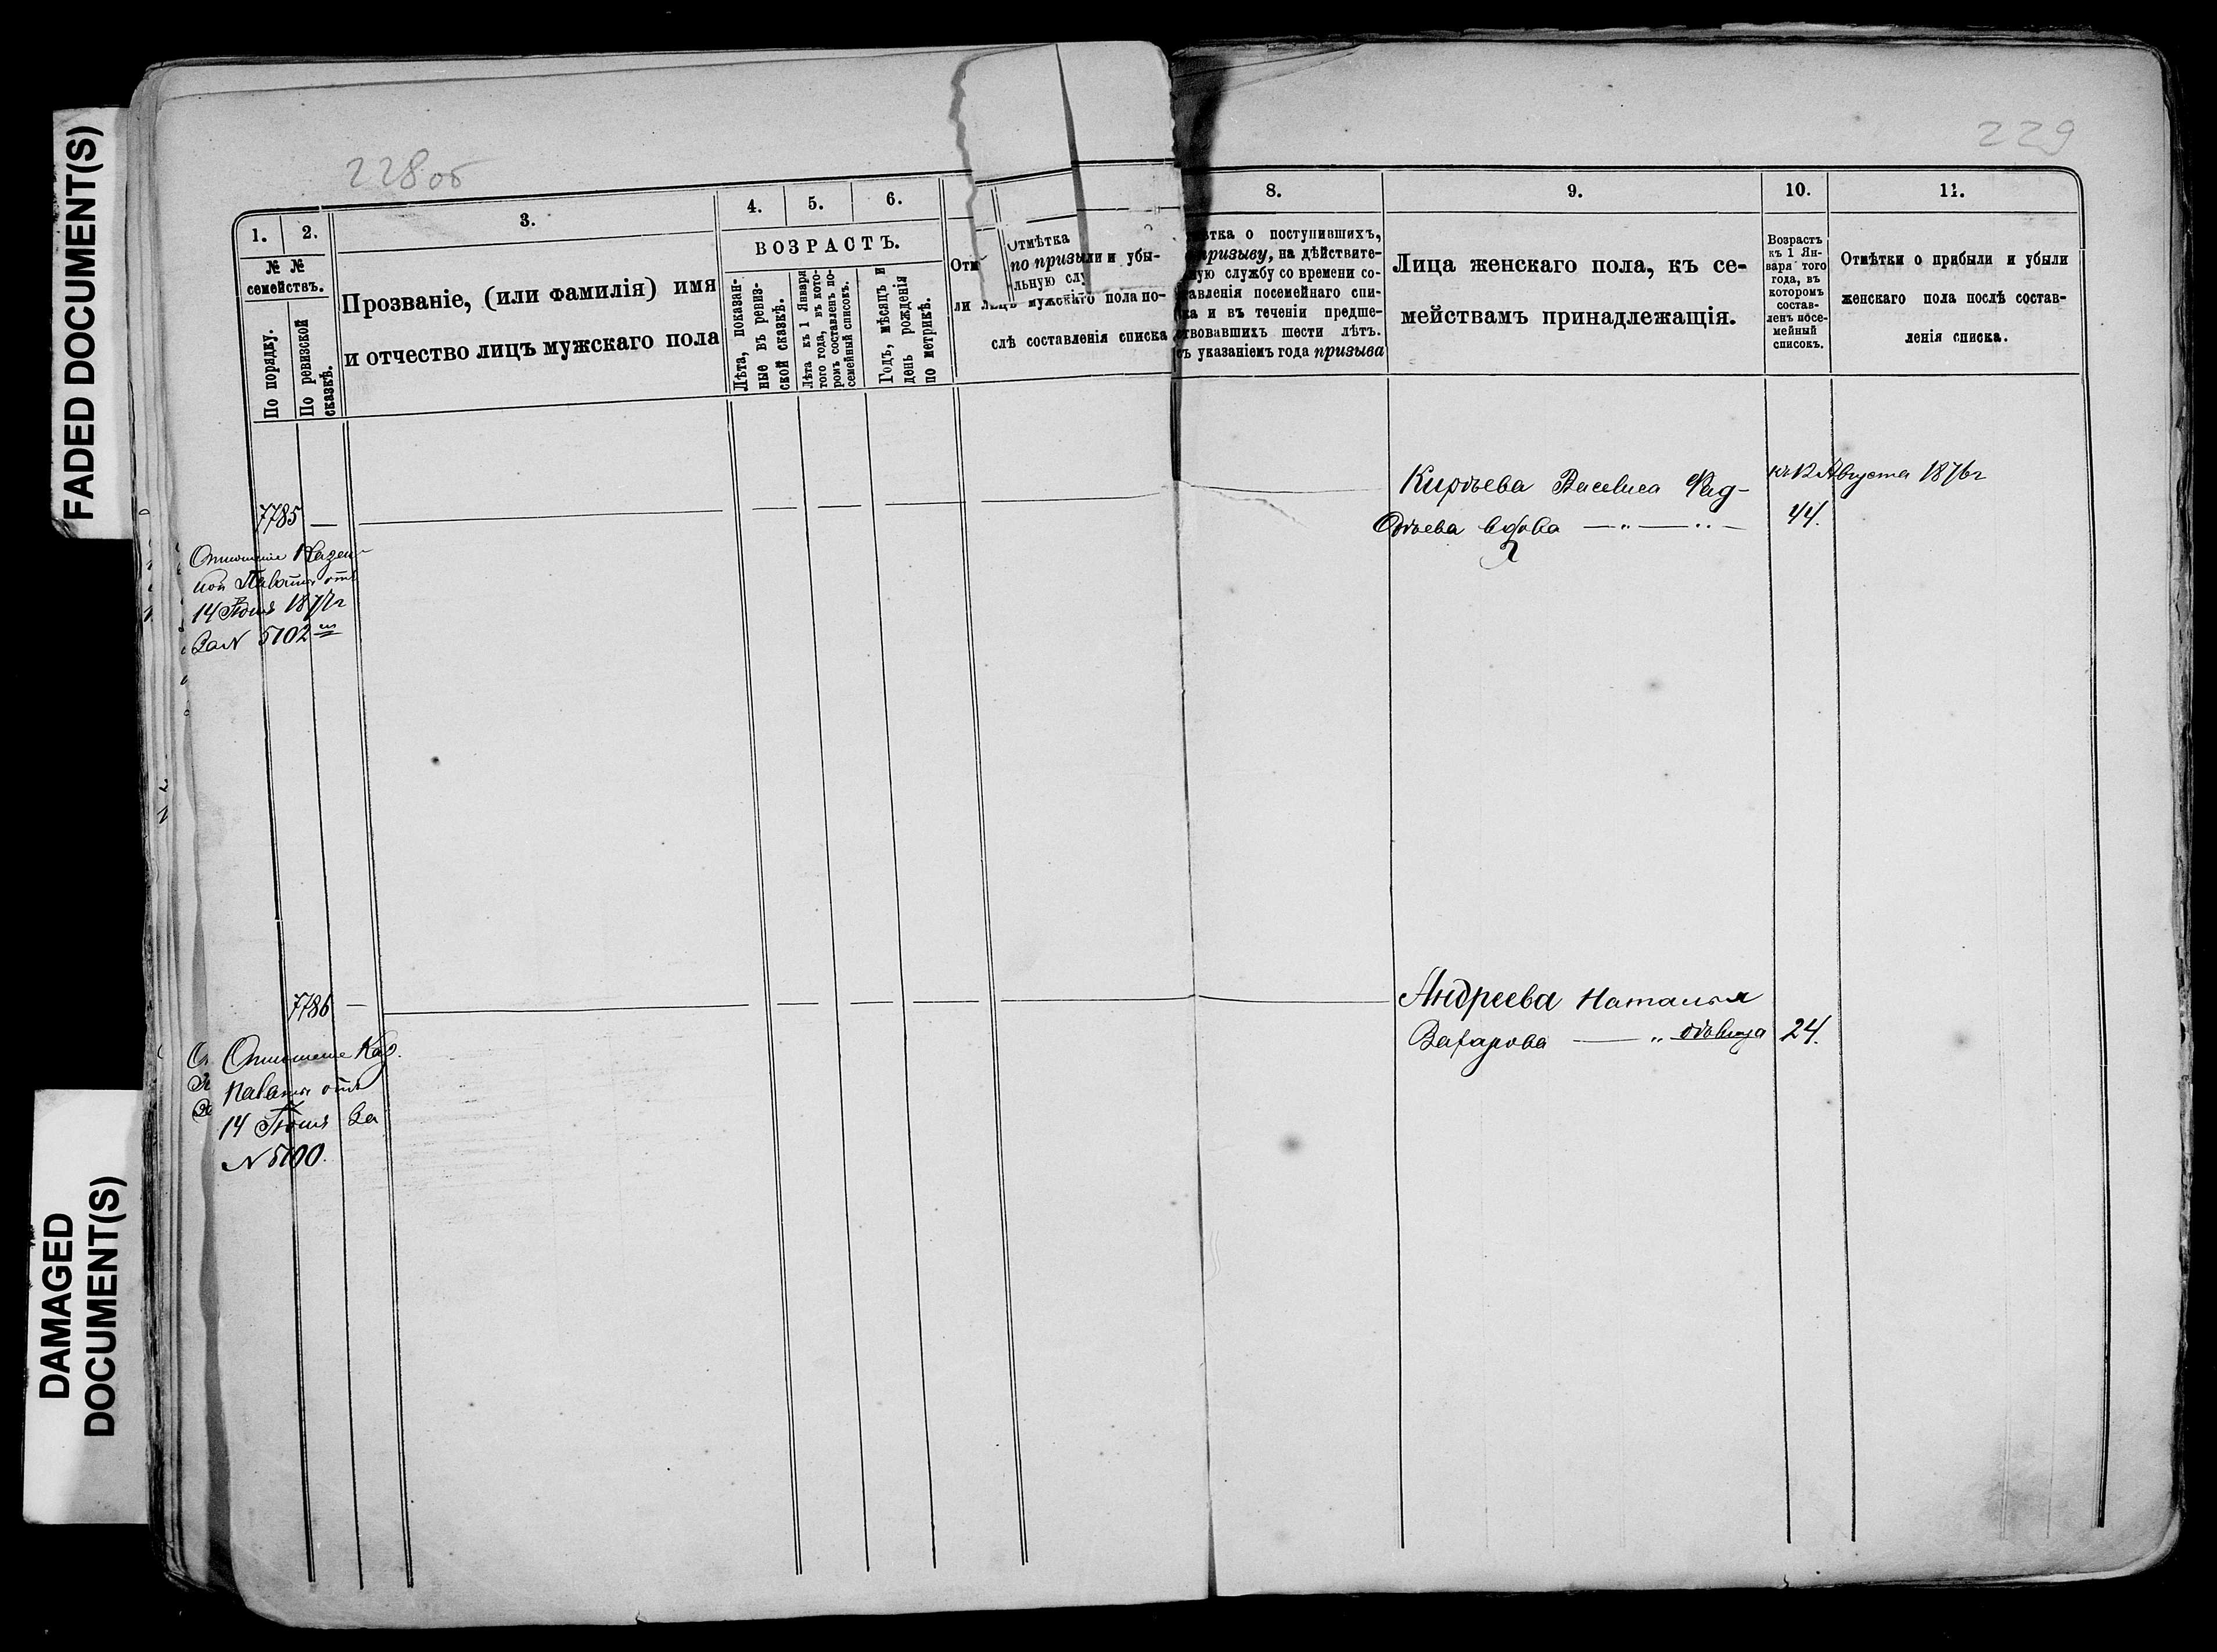 FADED DOCUMENT(S)
DAMAGED
DOCUMENT(S)
228 об
229
1.
2.
3.
4.
5.
6.
8.
9.
10.
11.
№ №
семействъ.
По порядку.
По ревизской
сказкѣ.
Прозваніе, (или фамилія) имя
и отчество лицъ мужскаго пола
ВОЗРАСТЪ.
Лѣта, показан-
ные въ ревиз-
ской сказкѣ.
Лѣта къ 1 Января
того года, въ кото-
ромъ составленъ по-
семейный списокъ.
Годъ, мѣсяцъ и
день рожденія
по метрикѣ.
Отмѣтка
по призы
ли и убы-
льную слу
мужскаго пола по-
слѣ составленія списка
о поступившихъ,
призыву, на дѣйствите-
ную службу со времени со-
тавленія посемейнаго спи-
ка и въ теченіи предше-
ствовавшихъ шести лѣтъ.
съ указаніемъ года призыва
Лица женскаго пола, къ се-
мействамъ принадлежащія.
Возрастъ
къ 1 Ян-
варя того
года, въ
которомъ
состав-
ленъ посе-
мейный
списокъ.
Отмѣтки о прибыли и убыли
женскаго пола послѣ состав-
ленія списка.
7785 —
Отношеніе Казен-
ной Палаты отъ
14 Іюня 1877 г
За N 5102
Василиса Фад-
вдова
Августа 1876 г
44.
7786 —
Отношеніе Каз.
Палаты отъ
14 Іюня За
N 5100.
Андреева Наталья
Захарова — „ дѣвица
24.